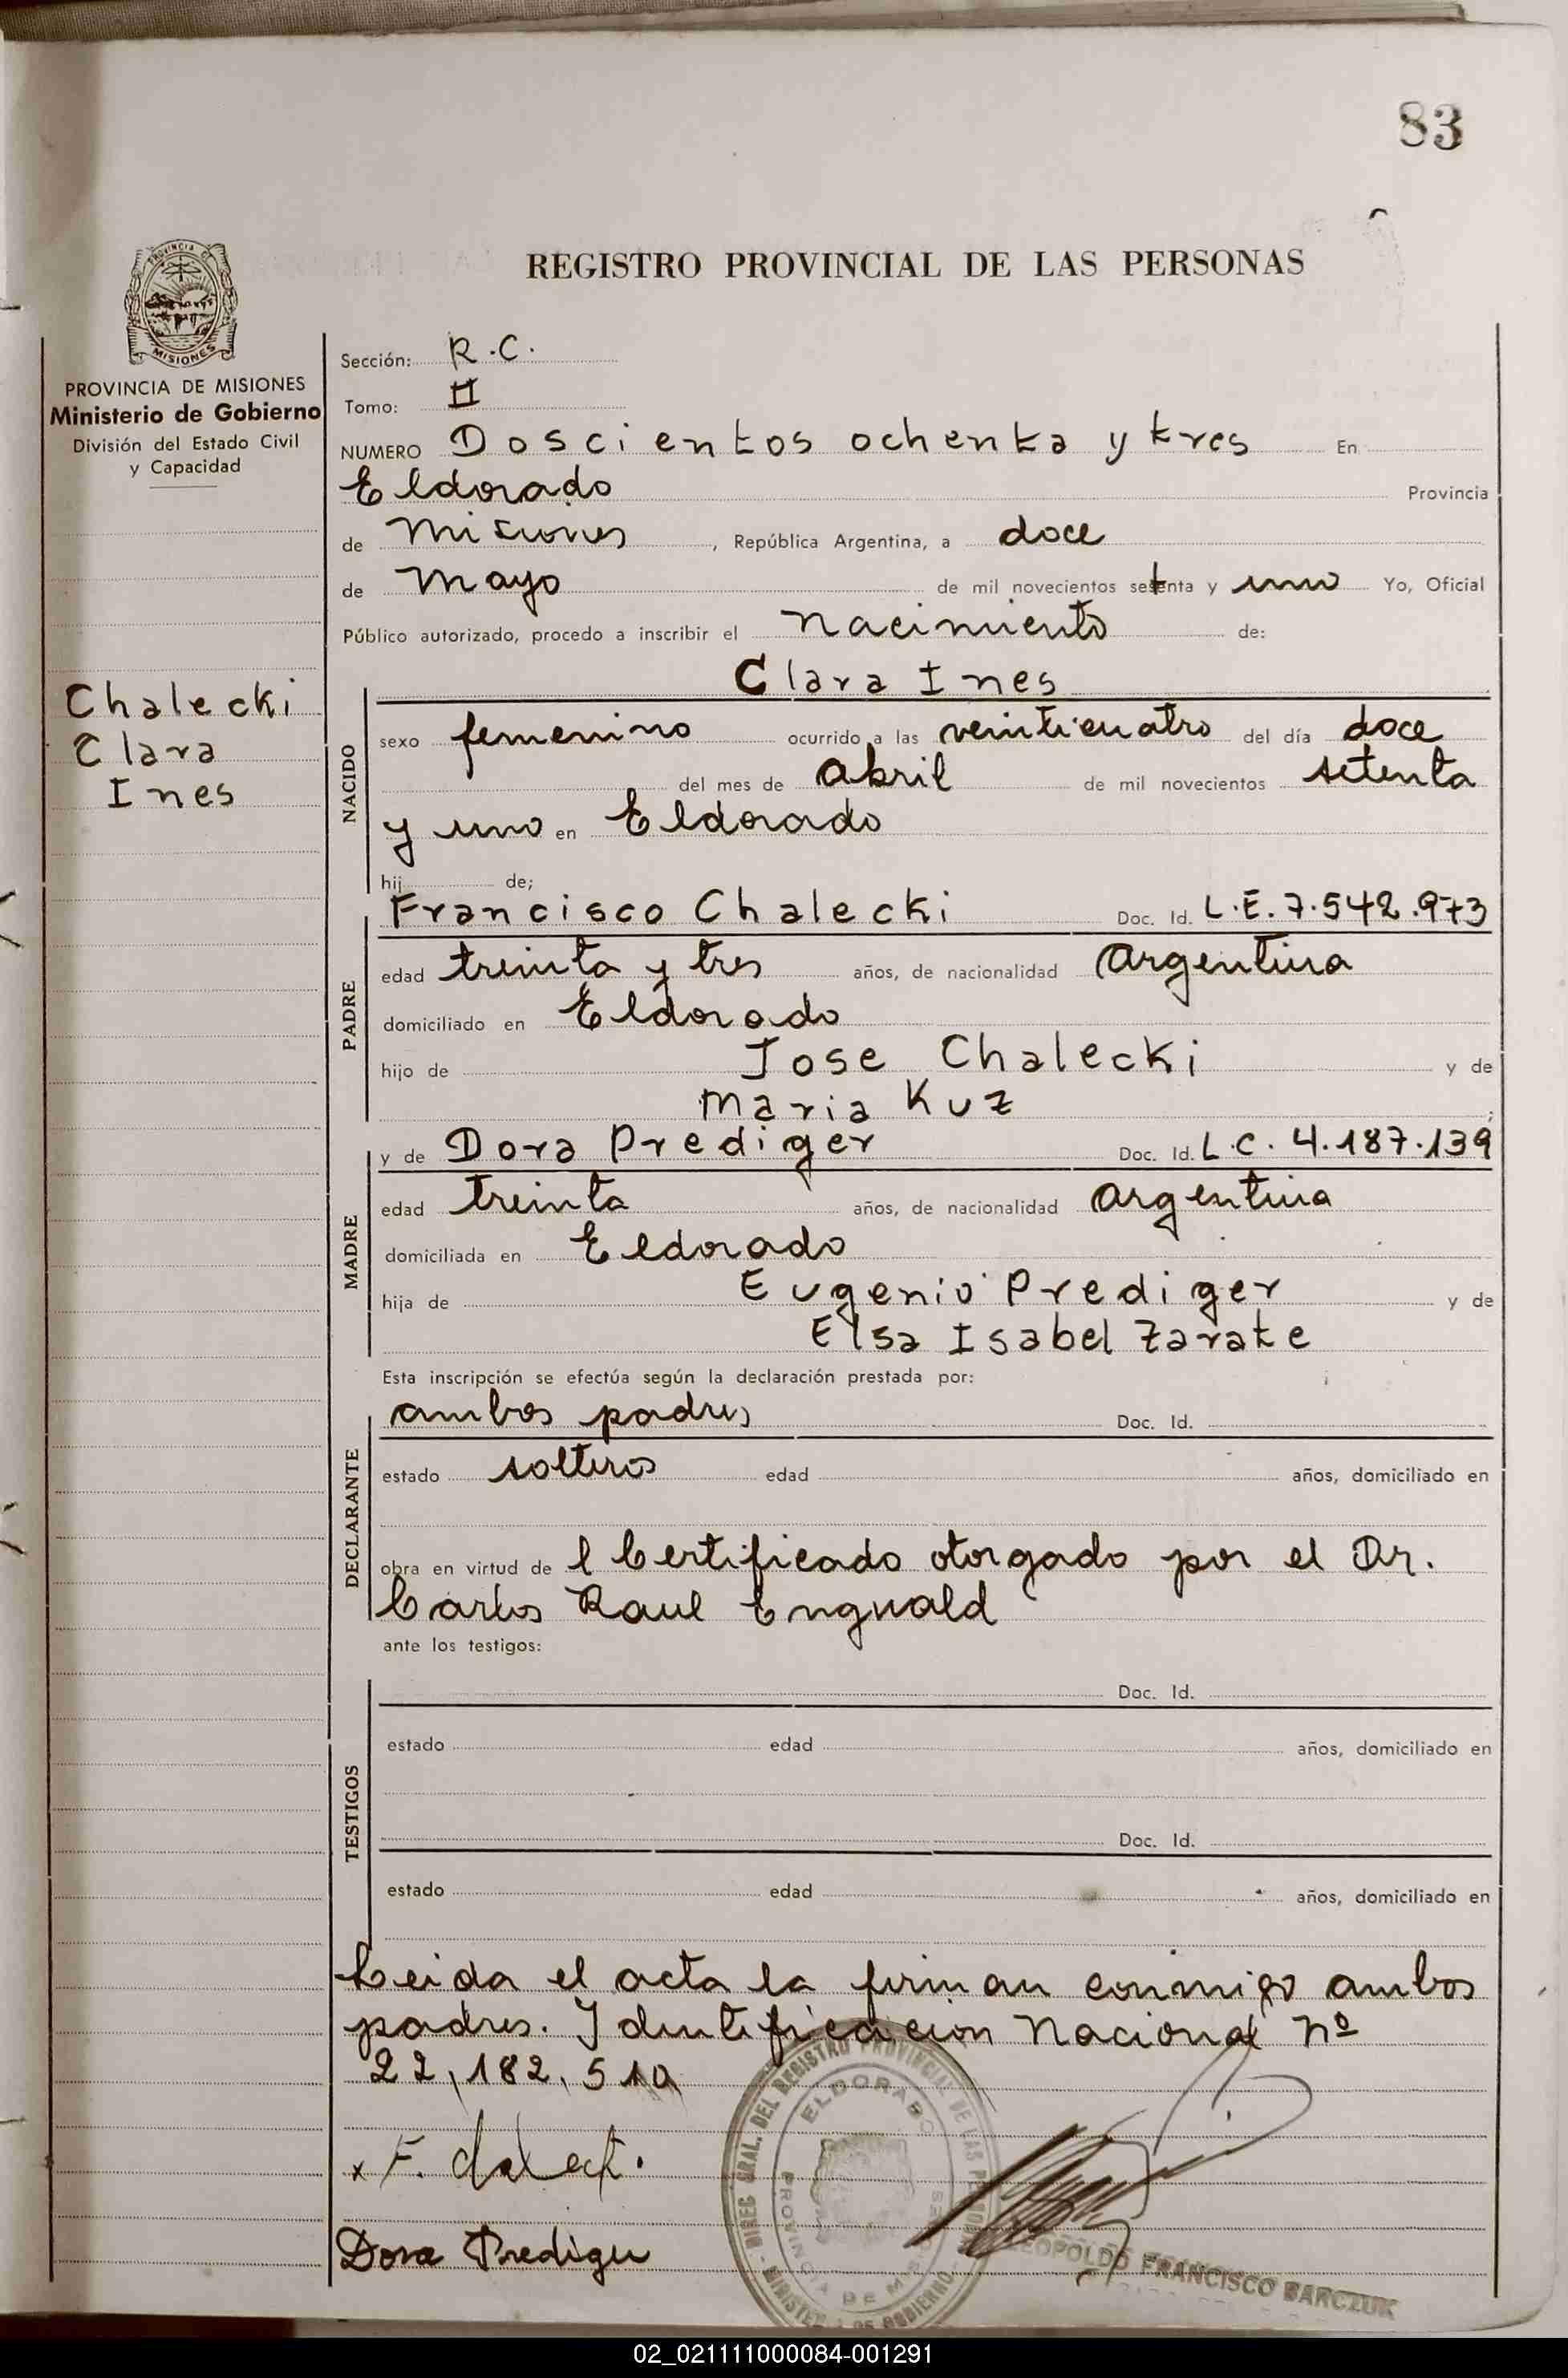 83
REGISTRO PROVINCIAL DE LAS PERSONAS
PROVINCIA
MISIONES
PROVINCIA DE MISIONES
Ministerio de Gobierno
División del Estado Civil
y Capacidad
Chalecki
Clara
Ines
Sección: R.C.
Tomo: II
NUMERO Doscientos ochenta y tres En
Eldorado Provincia
de Misiones, República Argentina, a doce
de Mayo de mil novecientos setenta y uno Yo, Oficial
Público autorizado, procedo a inscribir el nacimiento de:
Clara Ines
NACIDO
sexo femenino ocurrido a las veinticuatro del día doce
del mes de abril de mil novecientos setenta
y uno en Eldorado
hij de;
PADRE
Francisco Chalecki Doc. Id. L.E. 7.542.973
edad treinta y tres años, de nacionalidad Argentina
domiciliado en Eldorado
hijo de Jose Chalecki y de
Maria Kuz ;
MADRE
y de Dora Prediger Doc. Id. L.C. 4.187.139
edad treinta años, de nacionalidad Argentina
domiciliada en Eldorado
hija de Eugenio Prediger y de
Elsa Isabel Zarate
Esta inscripción se efectúa según la declaración prestada por:
DECLARANTE
ambos padres Doc. Id.
estado solteros edad años, domiciliado en
obra en virtud de l Certificado otorgado por el Dr.
Carlos Raul Engwald
ante los testigos:
TESTIGOS
Doc. Id.
estado edad años, domiciliado en
Doc. Id.
estado edad años, domiciliado en
Leida el acta la firman conmigo ambos
padres. Identificacion Nacional Nº
22,182,510
x F. Chalecki.
Dora Prediger
DIREC. GRAL. DEL REGISTRO PROVINCIAL DE LAS PERSONAS
ELDORADO
PROVINCIA DE MISIONES
MINISTERIO DE GOBIERNO
LEOPOLDO FRANCISCO BARCZUK
02_021111000084-001291